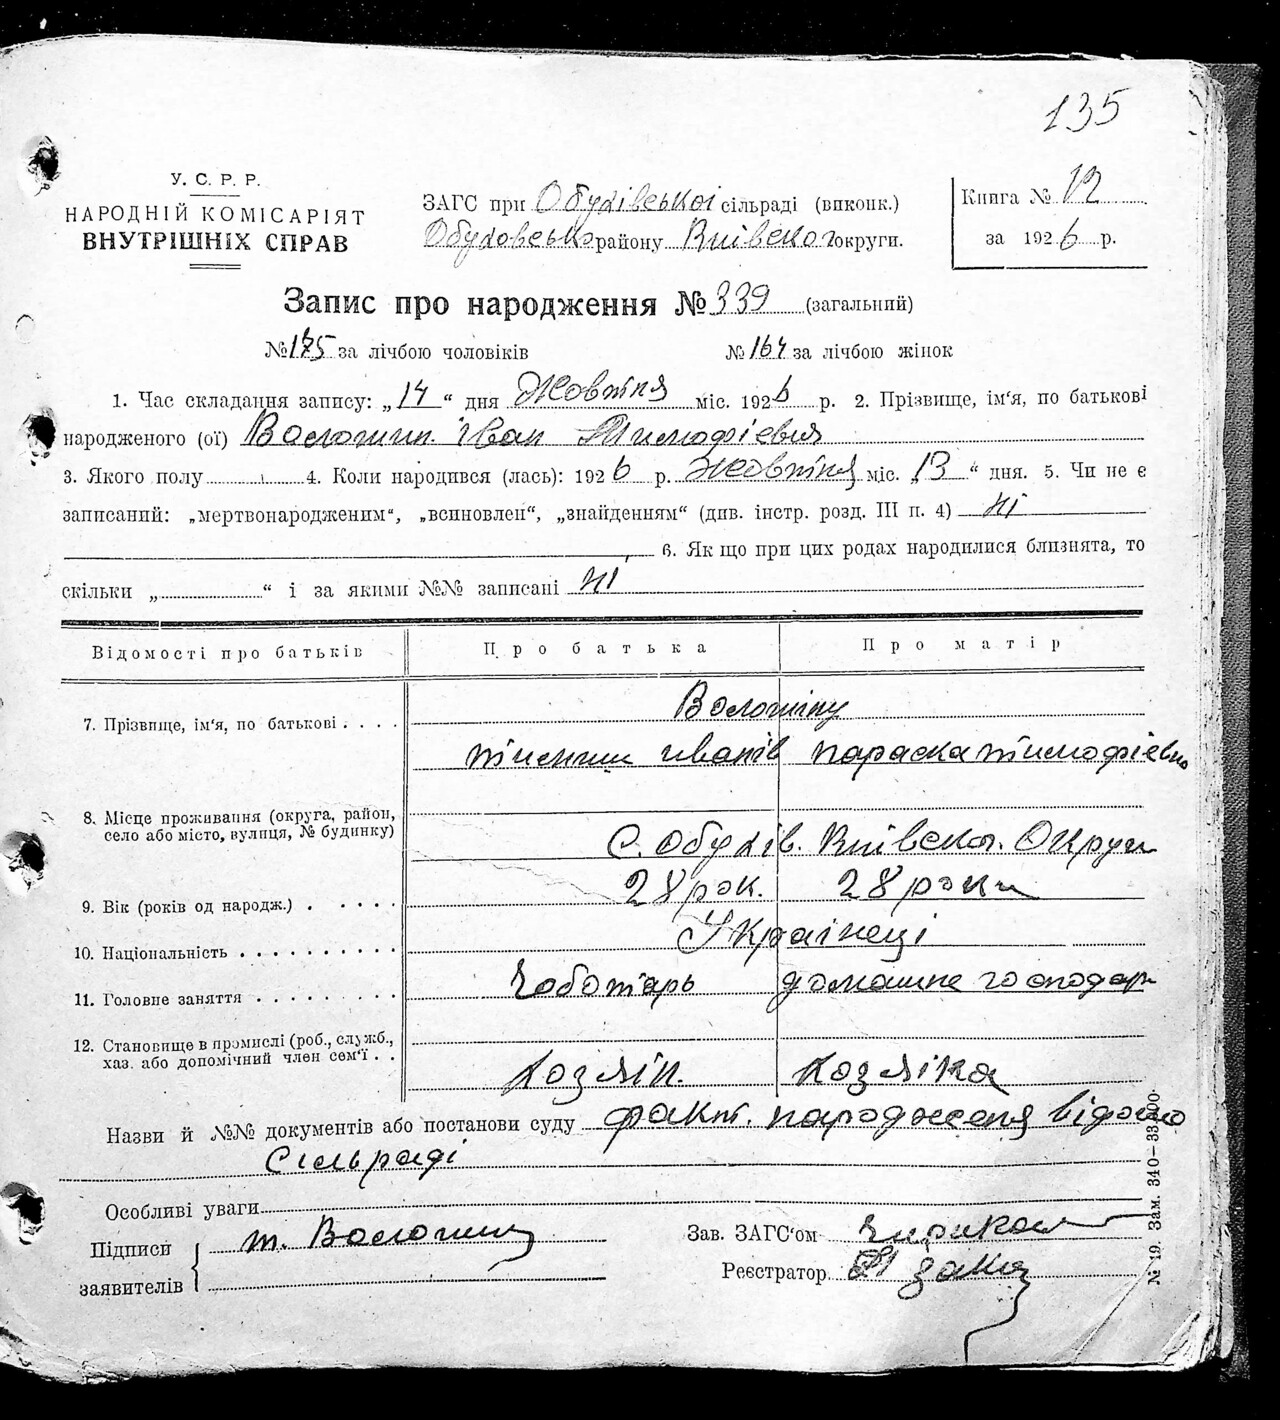 135
У. С. Р. Р.
НАРОДНІЙ КОМІСАРІЯТ
ВНУТРІШНІХ СПРАВ
ЗАГС при Обухівської сільраді (виконк.)
Обуховсько району Київсько округи.
Книга № 12
за 1926 р.
Запис про народження № 339 (загальний)
№ 175 за лічбою чоловіків № 164 за лічбою жінок
1. Час складання запису: „14“ дня Жовтня міс. 1926 р. 2. Прізвище, ім'я, по батькові
народженого (ої) Волошин Іван Тимофієвич
3. Якого полу 4. Коли народився (лась): 1926 р. Жовтня міс. „13“ дня. 5. Чи не є
записаний: „мертвонародженим“, „всиновлен“, „знайденям“ (див. інстр. розд. III п. 4) ні
6. Як що при цих родах народилися близнята, то
скільки „ “ і за якими №№ записані ні
Відомості про батьків Про батька Про матір
7. Прізвище, ім'я, по батькові . . . .
Тиміш Иванів Параска Тимофієвн
8. Місце проживання (округа, район,
село або місто, вулиця, № будинку)
С. Обухів. Київсько. Округи
9. Вік (років од народж.) . . . . . 28 рок. 28 роки
10. Національність . . . . . . . . . Українеці
11. Головне заняття . . . . . . . . . Чоботарь домашне господар
12. Становище в промислі (роб., служб.,
хаз. або допомічний член сем'ї . .
хозяін. хозяіка
Назви й №№ документів або постанови суду факт. народженя відомо
Сільраді
Особливі уваги
Підписи
заявителів
т. Волошин
Зав. ЗАГС'ом
Реєстратор
№ 19. Зам. 340—33.000.